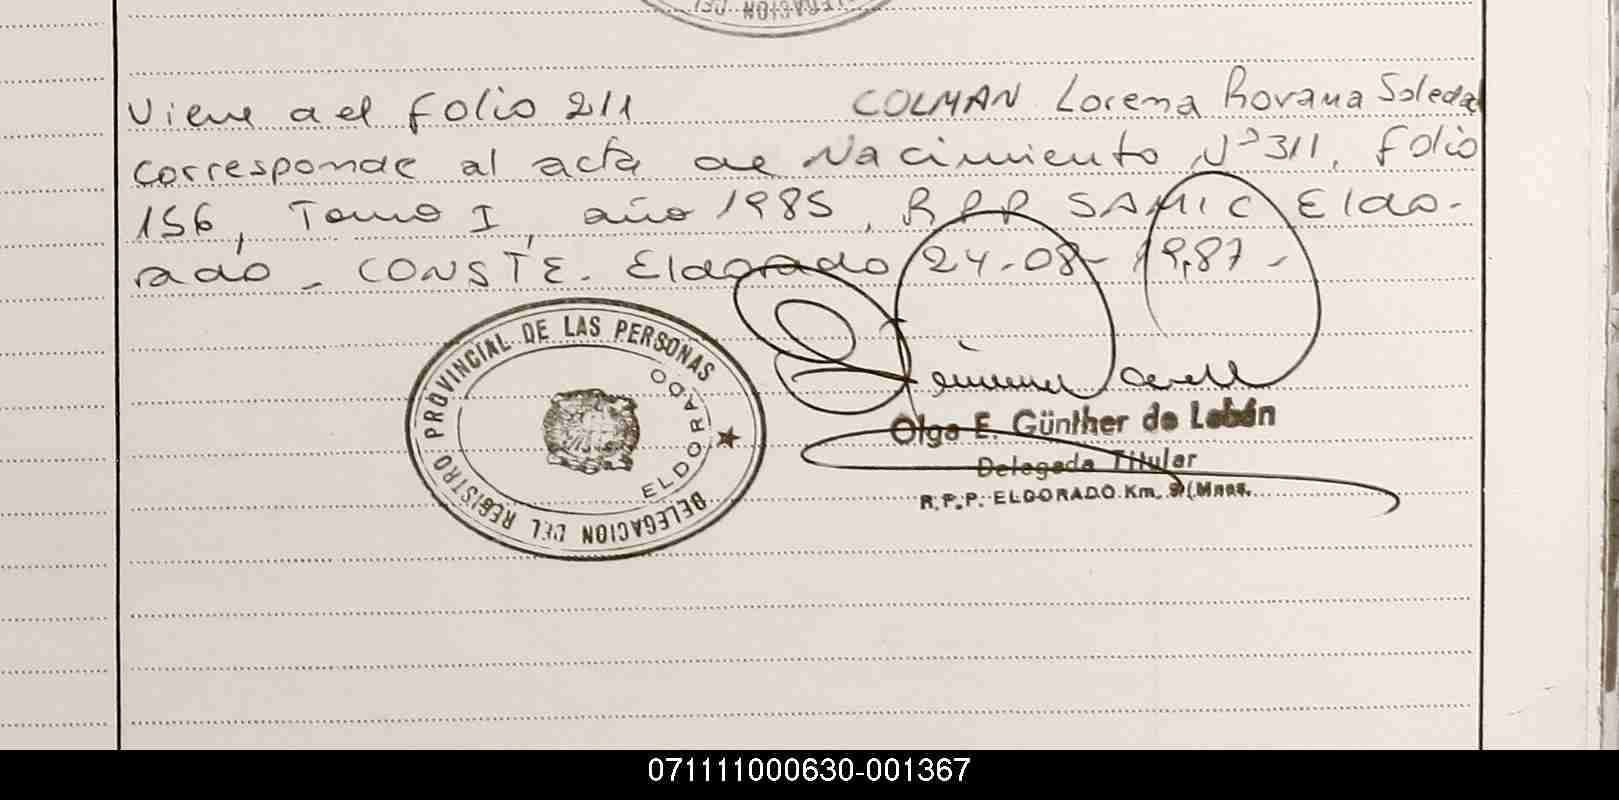 DELEGACION DEL
Viene del folio 211 COLMAN Lorena Rovana Soleda
corresponde al acta de Nacimiento Nº 311, Folio
156, Tomo I, año 1985, R P P SAMIC Eldo-
rado - CONSTE. Eldorado 24-08-1987-
REGISTRO PROVINCIAL DE LAS PERSONAS
ELDORADO
DELEGACION DEL
Olga E. Günther de Labán
Delegada Titular
R.P.P. ELDORADO Km. 9 (Mnes.
071111000630-001367